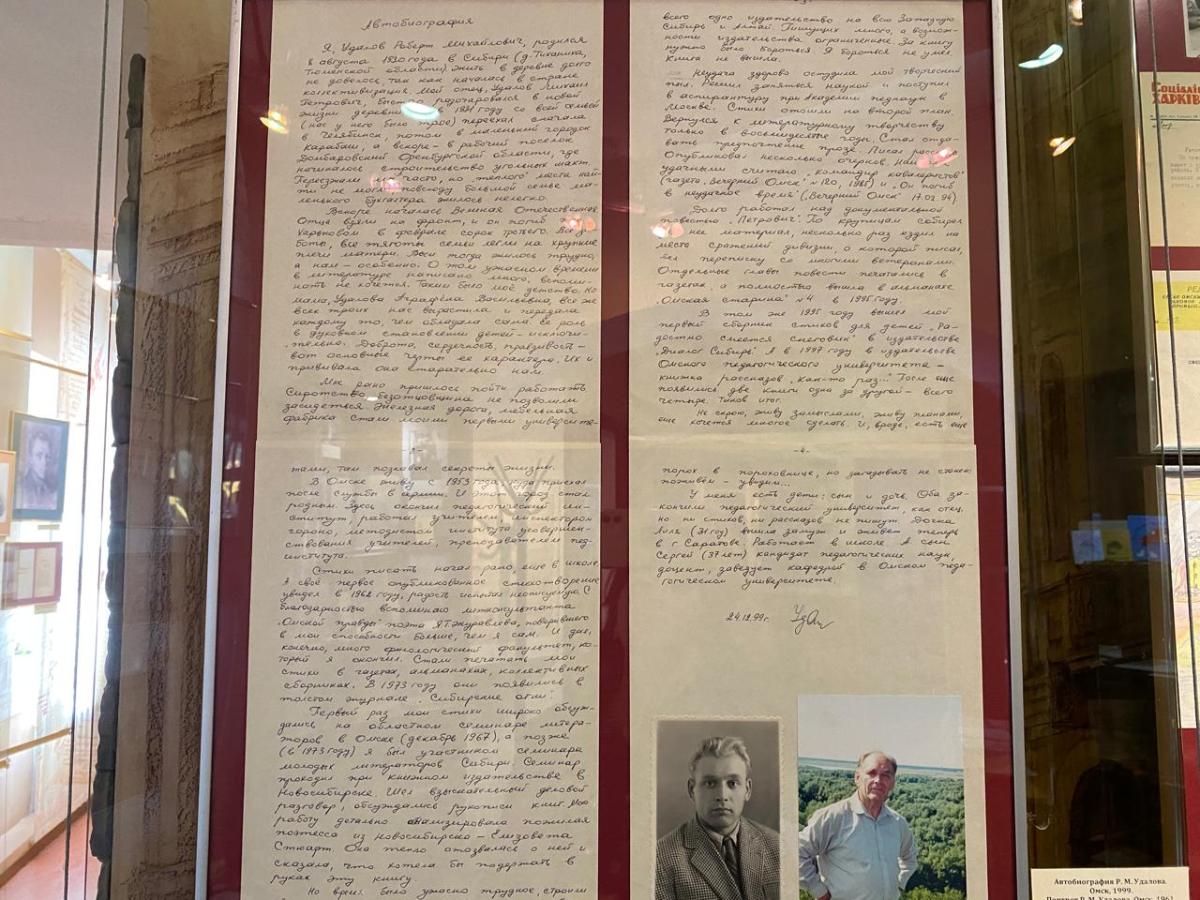 Автобиография
Я, Удалов Роберт Михайлович, родился
8 августа 1930 года в Сибири (д. Тиханиха,
Тюменской области). Жить в деревне долго
не довелось, так как началась в стране
коллективизация. Мой отец, Удалов Михаил
Петрович, быстро разочаровался в новой
жизни деревни и в году со всей семьёй
(нас у него было трое) переехал сначала
в Челябинск, потом в маленький городок
Карабаш, а вскоре – в рабочий поселок
Домбаровский Оренбургской области, где
начиналось строительство угольных шахт.
Переезжали мы часто, но "теплого" места най-
ти не могли, повсюду большой семье ма-
ленького бухгалтера жилось нелегко.
Вскоре началась Великая Отечественная
Отца взяли на фронт, и он погиб под
Харьковом в феврале сорок третьего. Все за-
боты, все тяготы семьи легли на хрупкие
плечи матери. Всем тогда жилось трудно,
а нам – особенно. О том ужасном времени
в литературе написано много, вспоми-
нать не хочется. Таким было моё детство. Но
мама, Удалова Аграфёна Васильевна, все же
всех троих нас вырастила и передала
каждому то, чем обладала сама. Ее роль
в духовном становлении детей – исключи-
тельно. Доброта, сердечность, правдивость –
вот основные черты ее характера. Их и
прививала она старательно нам.
Мне рано пришлось пойти работать
Сиротство, безотцовщина не позволили
засидеться. Железная дорога, мебельная
фабрика стали моими первыми университе-
тами, там познавал секреты жизни.
В Омске живу с 1953 года, куда приехал
после службы в армии. И этот город стал
родным. Здесь окончил педагогический ин-
ститут, работал учителем, инспектором
гороно, методистом института усовершен-
ствования учителей, преподавателем пед-
института.
Стихи писать начал рано, еще в школе.
А своё первое опубликованное стихотворение
увидел в 1962 году, радость испытал неописуемую. С
благодарностью вспоминаю литконсультанта
"Омской правды" поэта Я.Т. Журавлева, поверившего
в мои способности больше, чем я сам. И дал,
конечно, много филологический факультет, ко-
торый я окончил. Стали печатать мои
стихи в газетах, альманахах, коллективных
сборниках. В 1973 году они появились в
толстом журнале "Сибирские огни".
Первый раз мои стихи широко обсуж-
дались на областном семинаре литера-
торов в Омске (декабрь 1967), а позже
(в 1973 году) я был участником семинара
молодых литераторов Сибири. Семинар
проходил при книжном издательстве в
Новосибирске. Шел взыскательный деловой
разговор, обсуждались рукописи книг. Мою
работу детально анализировала пожилая
поэтесса из Новосибирска – Елизавета
Стюарт. Она тепло отозвалась о ней и
сказала, что хотела бы подержать в
руках эту книгу.
Но время было ужасно трудное, строили
всего одно издательство на всю Западную
Сибирь и Алтай. Пишущих много, а возмож-
ности издательства ограниченные. За книгу
нужно было бороться. Я бороться не умел
Книга не вышла.
Неудача здорово остудила мой творческий
пыл. Решил заняться наукой и поступил
в аспирантуру при Академии педнаук в
Москве. Стихи отошли на второй план.
Вернулся к литературному творчеству
только в восьмидесятые годы. Стал отда-
вать предпочтение прозе. Писал
Опубликовал несколько очерков.
удачными считаю "командир кавалеристов"
(газета "Вечерний Омск" № 120, 1985) и "Он погиб
в неудачное время" ("Вечерний Омск" 17.02.94)
Долго работал над документальной
повестью "Петрович". По крупицам собирал
нее материал, несколько раз ездил на
места сражений дивизии, о которой писал,
вел переписку со многими ветеранами.
Отдельные главы повести печатались в
газетах, а полностью вышла в альманахе
"Омская старина" № 4 в 1995 году.
В том же 1995 году вышел мой
первый сборник стихов для детей "Ра-
достно смеется снеговик" в издательстве
"Диалог Сибирь". А в 1997 году в издательстве
Омского педагогического университета –
книжка рассказов "Как-то раз..." После еще
появились две книги одна за другой – всего
четыре. Таков итог.
Не скрою, живу замыслами, живу планами,
еще хочется многое сделать. И, вроде, есть еще
- 4 -
порох в пороховнице, но загадывать не стоит
поживём – увидим...
У меня есть дети: сын и дочь. Оба за-
кончили педагогический университет, как отец,
но ни стихов, ни рассказов не пишут. Дочка
Лиля (31 год) вышла замуж и живет теперь
в г. Саратове. Работает в школе. А сын
Сергей (37 лет) кандидат педагогических наук,
доцент, заведует кафедрой в Омском педа-
гогическом университете.
24.12.99 г.
Автобиография Р. М. Удалова.
Омск, 1999.
Портрет Р. М. Удалова. Омск. 1961
Соціаліс
Харків